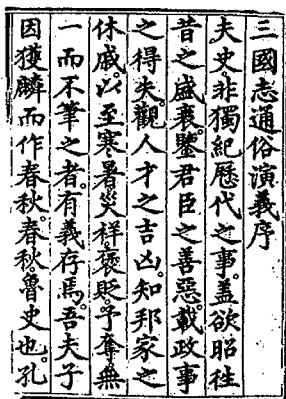 三國志通俗演義序
夫史非獨紀歷代之事。蓋欲昭往
昔之盛衰。鑒君臣之善惡。載政事
之得失。觀人才之吉凶。知邦家之
休戚。以至寒暑災祥。褒貶予奪。無
一而不筆之者。有義存焉。吾夫子
因獲麟而作春秋。春秋。魯史也。孔